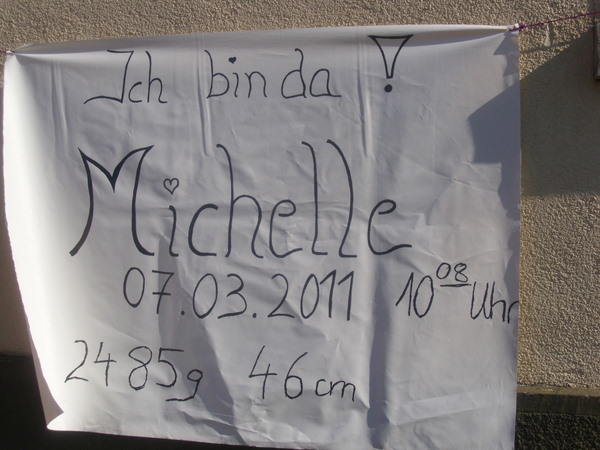 Ich bin da!
Michelle
07.03.2011 10⁰⁸ Uhr
2485g 46cm